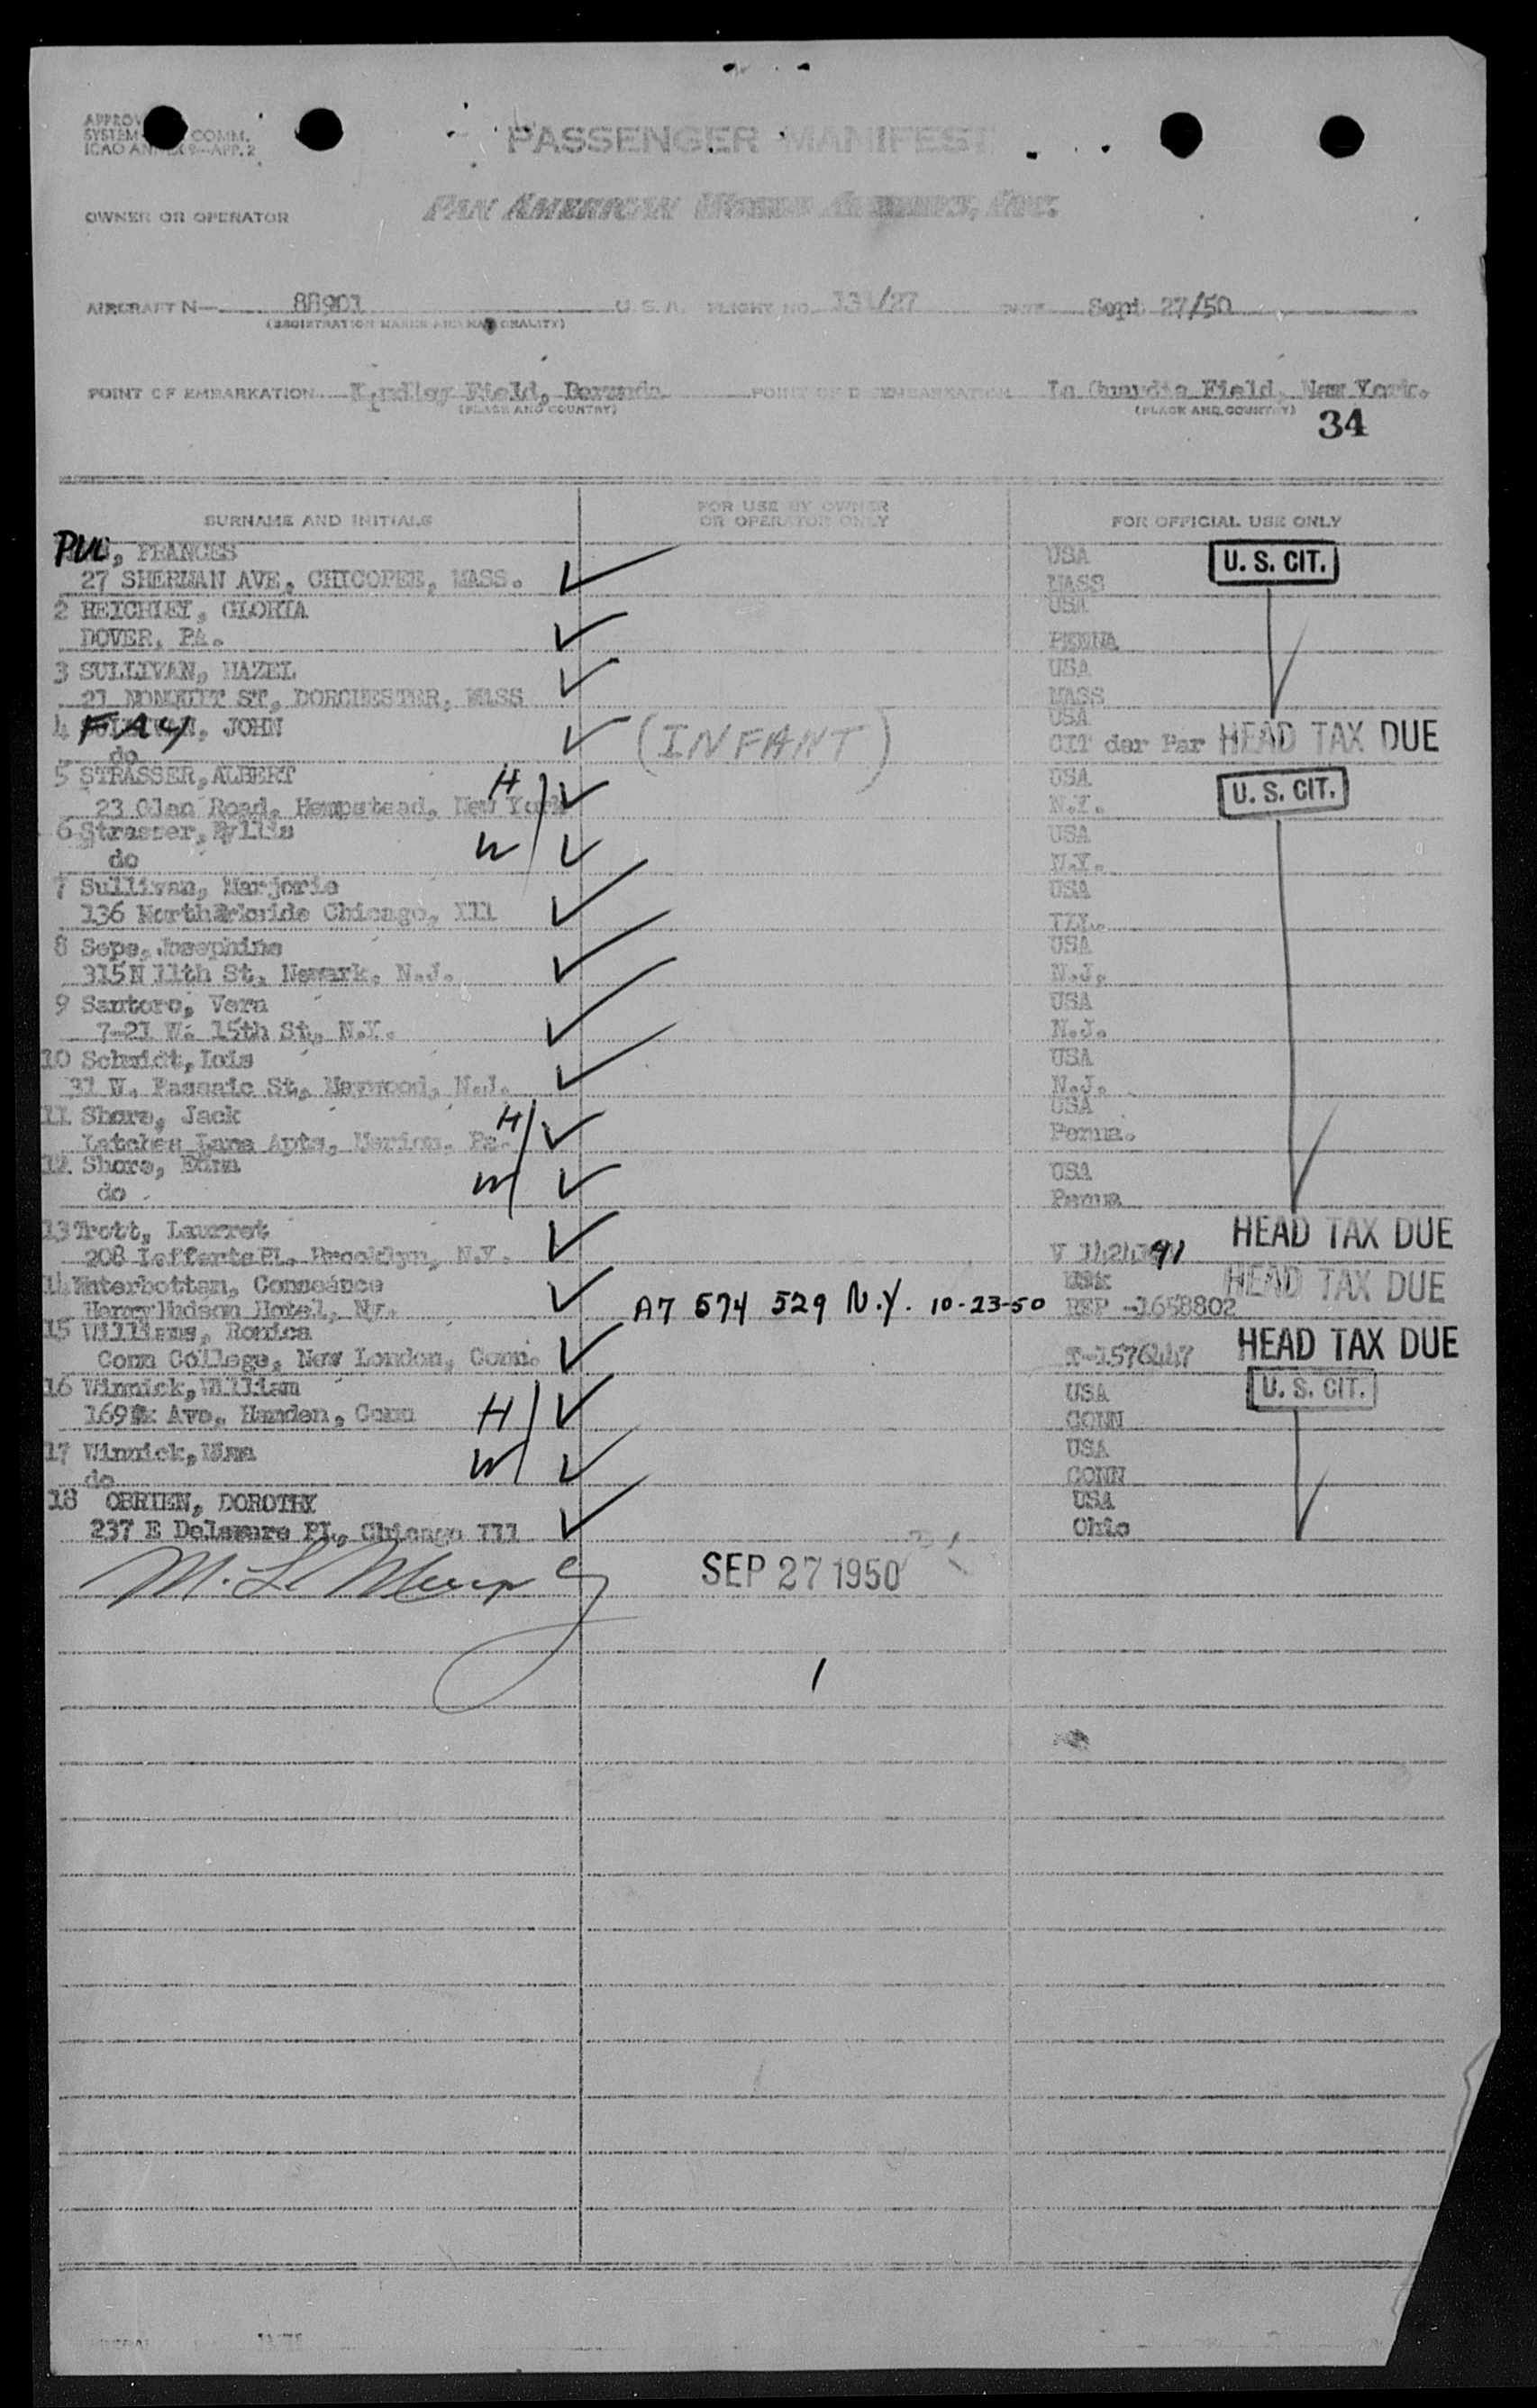 PASSENGER MANIFEST
PAN AMERICAN WORLD AIRWAYS, INC.
OWNER OR OPERATOR
AIRCRAFT N— 88901 U. S. A. FLIGHT NO. 131/27 DATE Sept 27/50
(REGISTRATION MARKS AND NATIONALITY)
POINT OF EMBARKATION Kindley Field, Bermuda POINT OF DISEMBARKATION La Guardia Field, New York.
(PLACE AND COUNTRY) (PLACE AND COUNTRY)
34
SURNAME AND INITIALS FOR USE BY OWNER OR OPERATOR ONLY FOR OFFICIAL USE ONLY
FRANCES USA U. S. CIT.
27 SHERMAN AVE, CHICOPEE, MASS. MASS
2 REICHLEY, GLORIA USA
DOVER, PA. PENNA
3 SULLIVAN, HAZEL USA
21 ST, DORCHESTER, MASS MASS
4 FAY, JOHN (INFANT) USA
do CIT der Par HEAD TAX DUE
5 STRASSER, ALBERT H USA U. S. CIT.
23 Glen Road, Hempstead, New York N.Y.
6 Strasser, W USA
do N.Y.
7 Sullivan, Marjorie USA
136 Chicago, Ill ILL.
8 Sepe, Josephine USA
315N 11th St, Newark, N.J. N.J.
9 Santoro, Vera USA
7-21 W. 15th St, N.Y. N.J.
10 Schmidt, Lois USA
31 W. Passaic St, Maywood, N.J. N.J.
11 Shore, Jack H USA
Latches Lane Apts, Merion, Pa. Penna.
12 Shore, Edna W USA
do Penna
13 Trott, HEAD TAX DUE
208 Lefferts Pl. Brooklyn, N.Y. V
14 HEAD TAX DUE
Hotel, Ny. A7 574 529 N.Y. 10-23-50 REP -1658802
15 Williams, HEAD TAX DUE
Conn College, New London, Conn. T-1576447
16 Winnick, William H USA U. S. CIT.
169 Ave, Hamden, Conn CONN
17 Winnick, W USA
do CONN
18 OBRIEN, DOROTHY USA
237 E Delaware Pl, Chicago Ill Ohio
SEP 27 1950